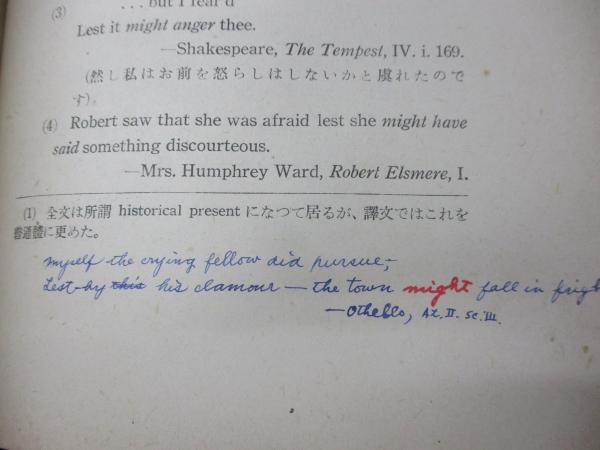 (3) ... but I fear'd
Lest it might anger thee.
—Shakespeare, The Tempest, IV. i. 169.
(然し私はお前を怒らしはしないかと虞れたので
す)。
(4) Robert saw that she was afraid lest she might have
said something discourteous.
—Mrs. Humphrey Ward, Robert Elsmere, I.
(1) 全文は所謂 historical present になつて居るが、譯文ではこれを
普通體に更めた。
myself the crying fellow did pursue,
Lest—by this his clamour — the town might fall in frigh
—Othello, At. II. Sc. III.